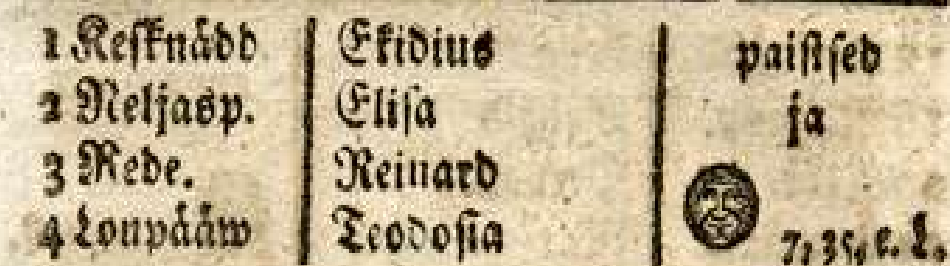 1 Keſknådd | Ekidius | paiſtſed
2 Neljasp. | Eliſa | ja
3 Rede. | Reinard
4 Loupååw | Teodoſia | 7, 35, e. L.